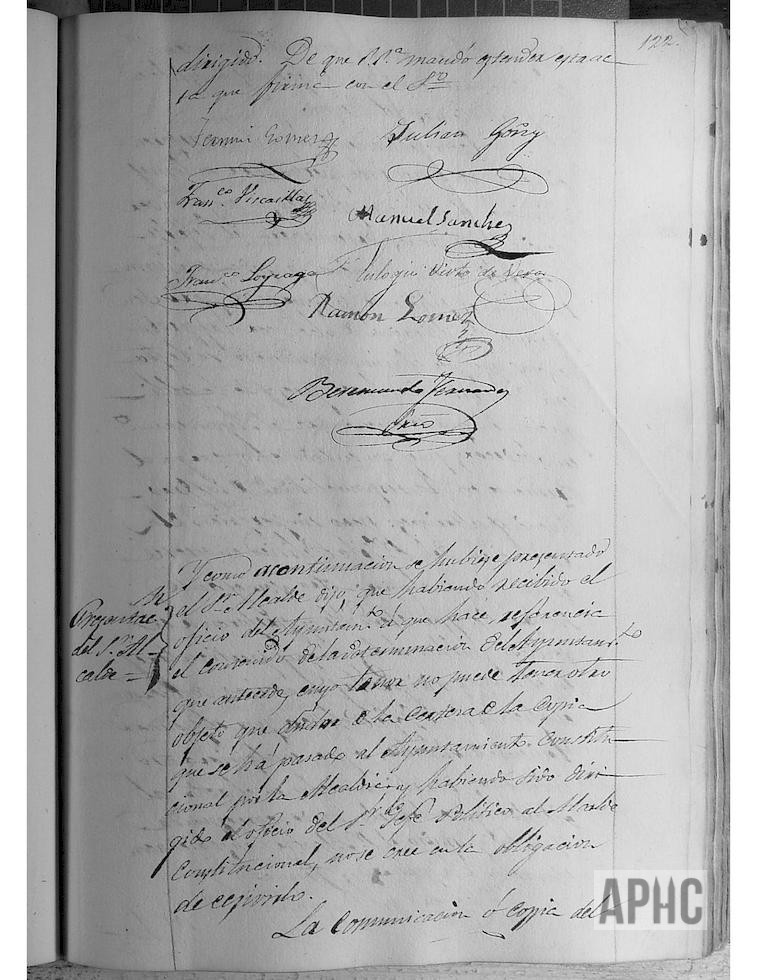 122.
dirigido. De que S.S.ª mandó estender esta ac-
ta que firma con el S.rio
Fermin Gomez Julian Goñy
Fran.co Viscasillas
Manuel Sanchez
Fran.co Loyzaga Eulogio de Vera
Ramon Gomez
Beremundo Fernandez
Srio
Presentac.n
del S.r Al-
calde =
Y como acontinuacion se hubiese presentado
el S.r Alcalde dijo, que habiendo recibido el
oficio del Ayuntam.to á que hace referencia
el contenido de la determinacion del Ayuntam.to
que antecede, cuyo tenor no puede tener otro
objeto que de la de la Copia
que se há pasado al Ayuntamiento Constitu-
cional por la Alcaldia y habiendo sido diri-
gido el oficio del S.r Gefe Politico al Alcalde
Constitucional, no se cree en la obligacion
de
La Comunicacion ó Coppia del
APHC